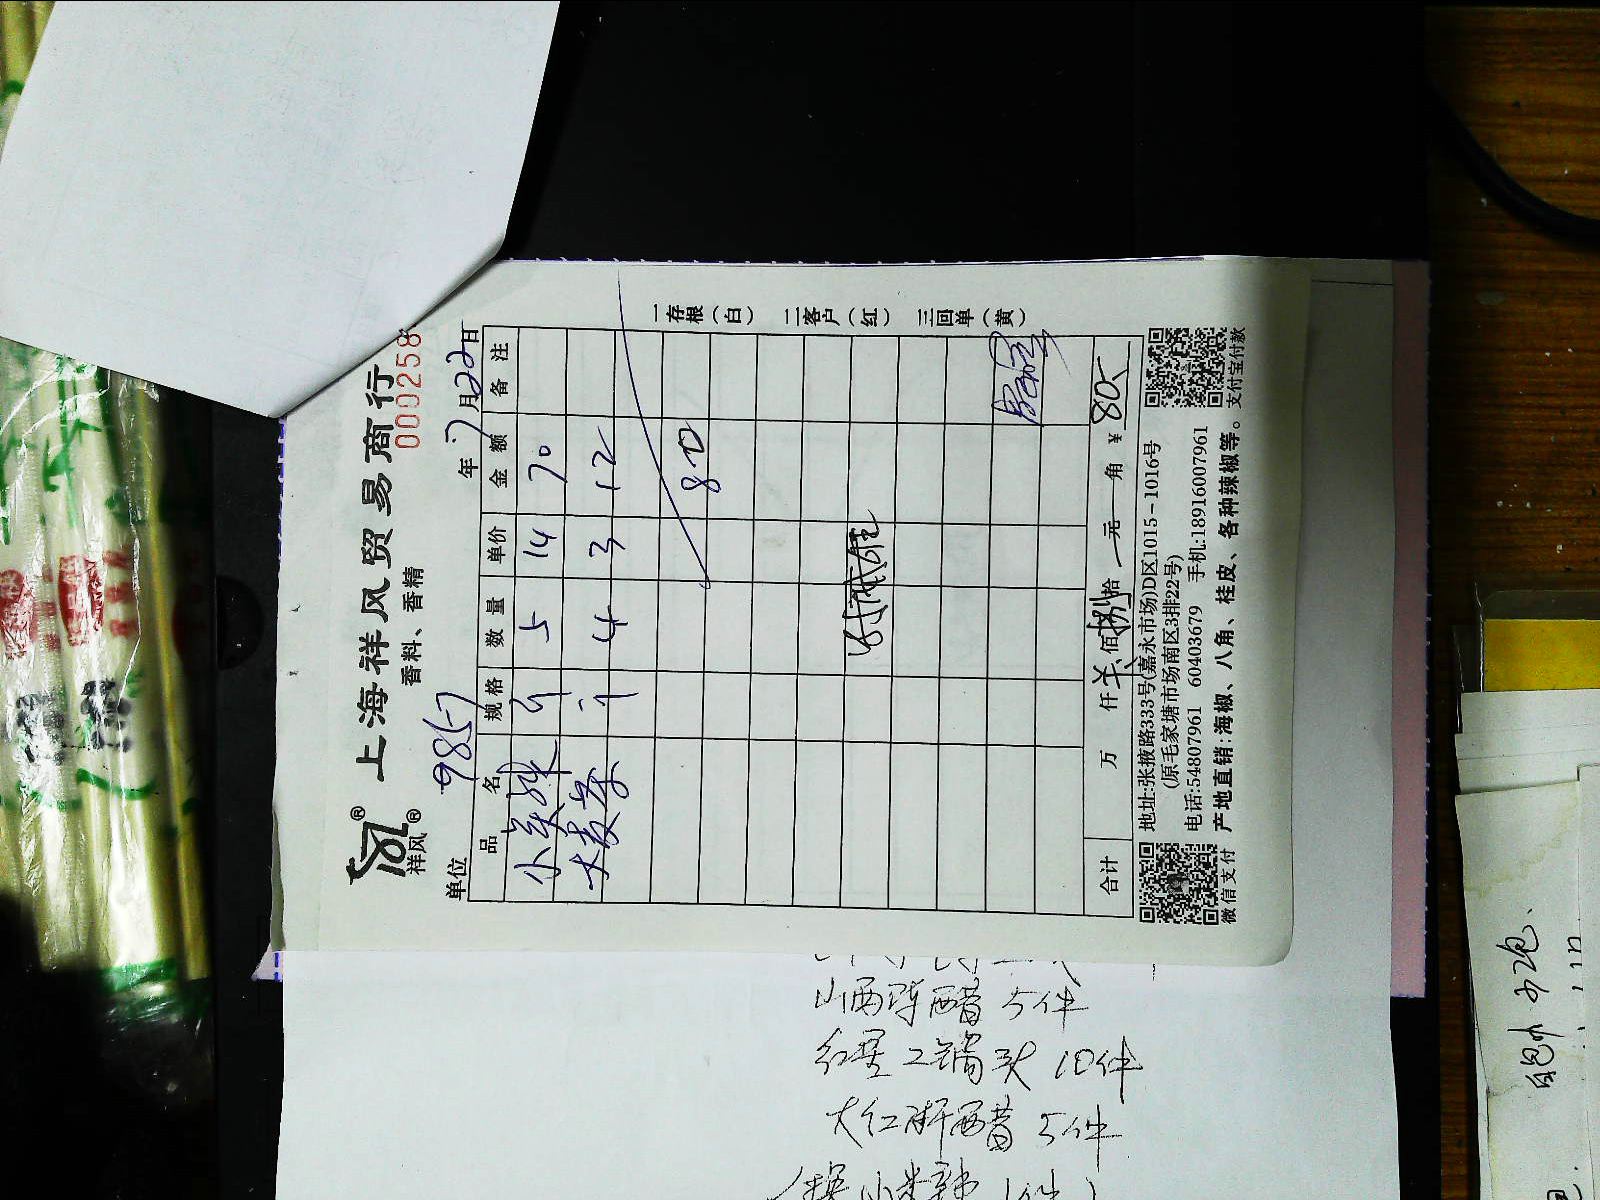 上海祥风贸易商行
祥风
香料、香精
0000258
单位 9857 年7月22日
品名 规格 数量 单价 金额 备注
斤 5 14 70
斤 4 3 12
80
合计 万 仟 佰捌拾 元 角 ¥80
一存根(白) 二客户(红) 三回单(黄)
地址:张掖路333号(嘉永市场)D区1015-1016号
(原毛家塘市场南区3排22号)
电话:54807961 60403679 手机:18916007961
产地直销:海椒、八角、桂皮、各种辣椒等。
微信支付
支付宝付款
山西陈醋 5件
红星二锅头 10件
大红浙醋 5件
小米辣 1件